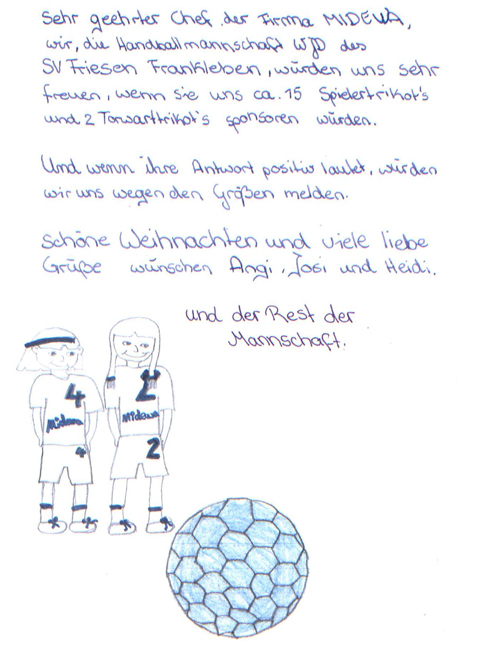 Sehr geehrter Chef der Firma MIDEWA,
wir, die Handballmannschaft WJD des
SV Friesen Frankleben, würden uns sehr
freuen, wenn sie uns ca. 15 Spielertrikot's
und 2 Torwarttrikot's sponsoren würden.
Und wenn ihre Antwort positiv lautet, würden
wir uns wegen den Größen melden.
Schöne Weihnachten und viele liebe
Grüße wünschen Angi, Josi und Heidi.
und der Rest der
Mannschaft.
4
2
Midewa
Midewa
4
2